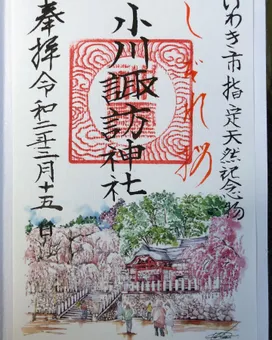 いわき市指定天然記念物
しだれ桜
小川諏訪神社
奉拝 令和二年三月十五日